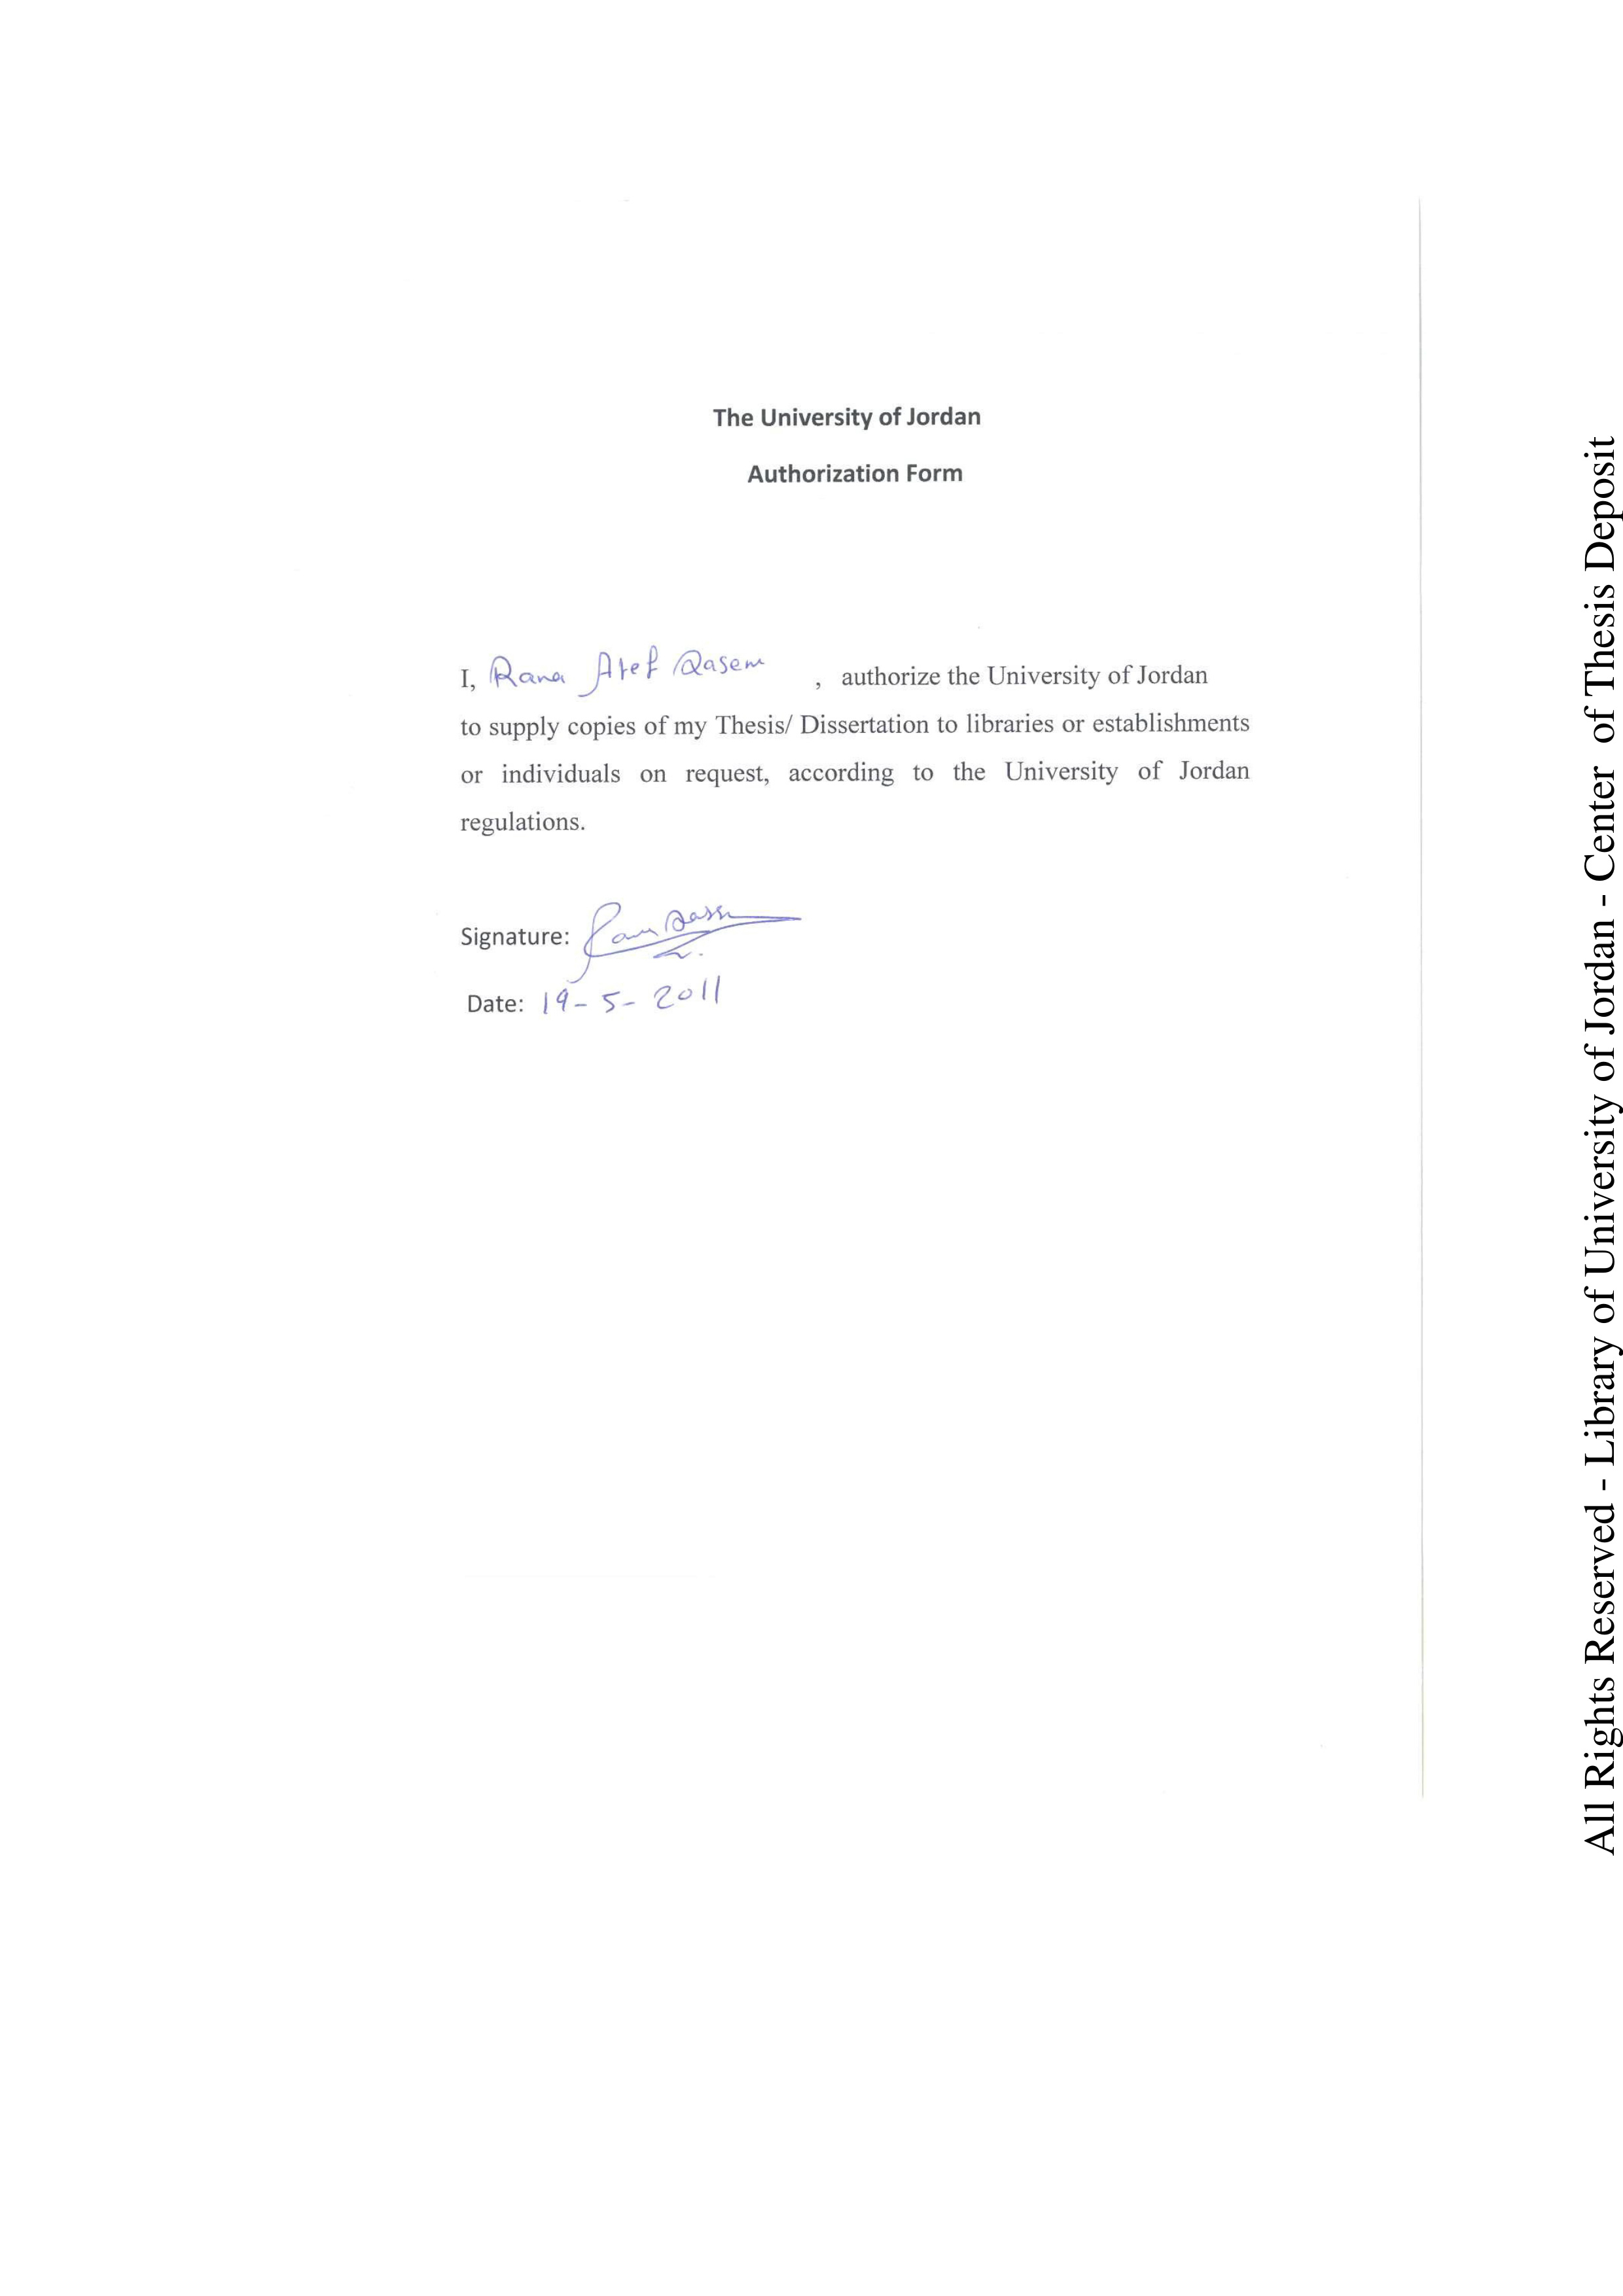 The University of Jordan
Authorization Form
I, Rana Atef Qasem , authorize the University of Jordan
to supply copies of my Thesis/ Dissertation to libraries or establishments
or individuals on request, according to the University of Jordan
regulations.
Signature:
Date: 19-5-2011
All Rights Reserved - Library of University of Jordan - Center of Thesis Deposit